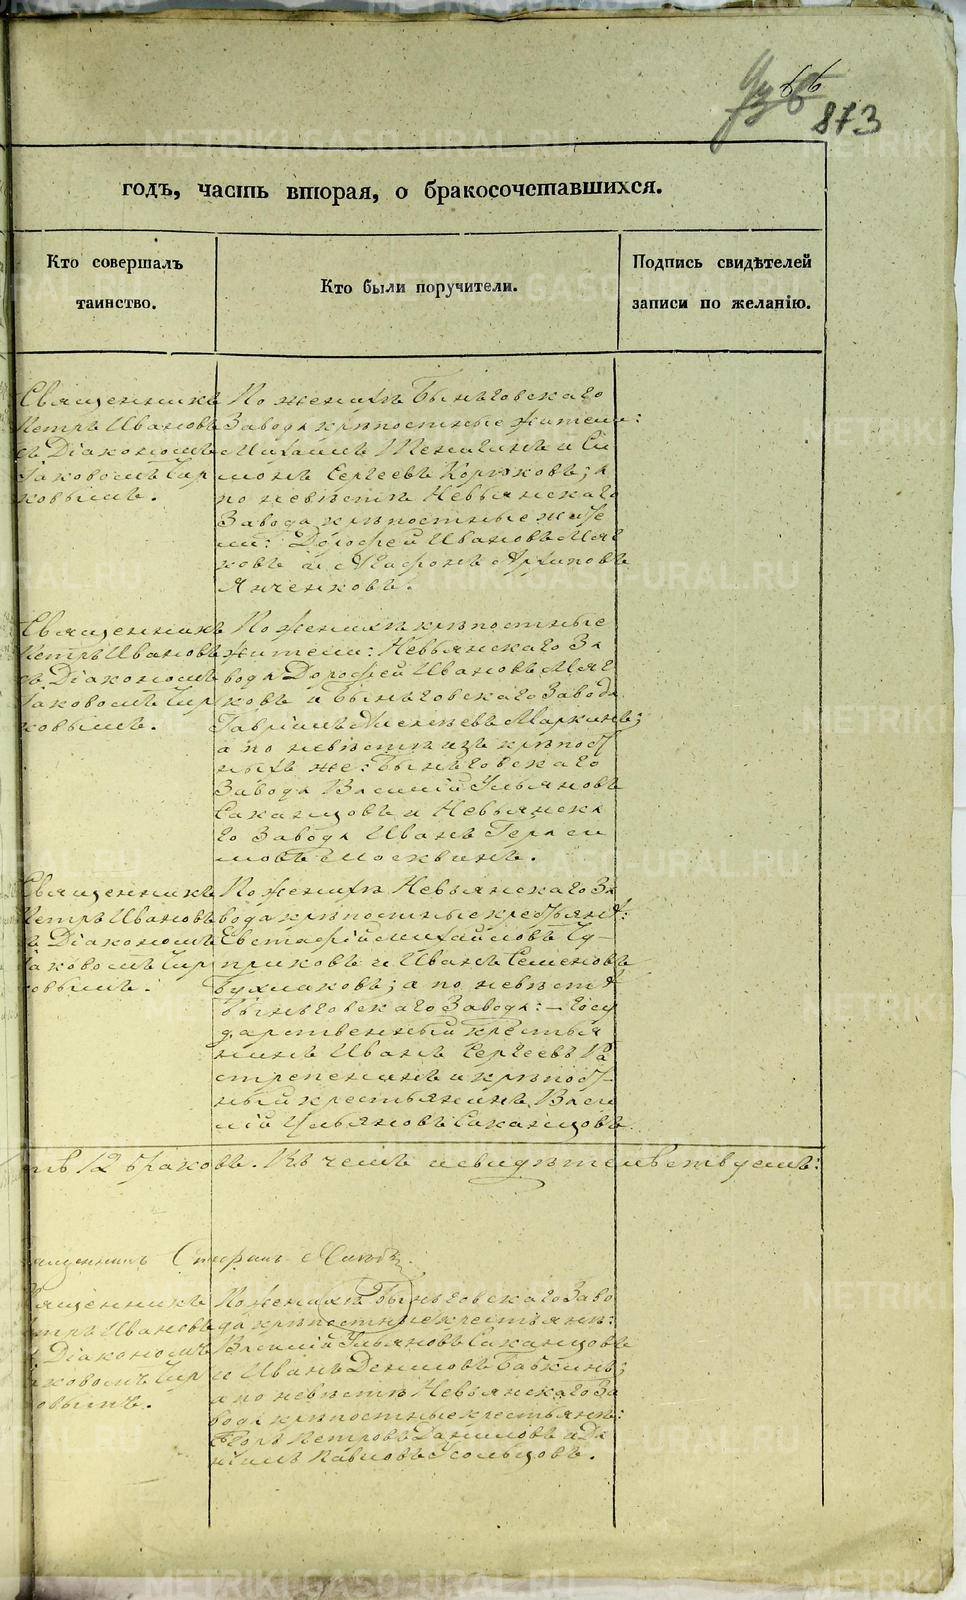 66
873
годъ, часть вторая, о бракосочетавшихся.
Кто совершалъ
таинство.
Кто были поручители.
Подпись свидѣтелей
записи по желанію.
Священникъ
Петръ Ивановъ
съ Діакономъ
Іаковомъ Чир
ковымъ.
По женихѣ Быньговскаго
Завода крѣпостные жители:
Михаилъ и Си
монъ Сергеевъ Коряковъ; а
по невѣстѣ Невьянскаго
Завода крѣпостные жите
ли: Дорофей Ивановъ Мяг
ковъ и Агафонъ Архиповъ
Янченковъ.
Священникъ
Петръ Ивановъ
съ Діакономъ
Іаковомъ Чир
ковымъ.
По женихѣ крѣпостные
жители: Невьянскаго За
вода Дорофей Ивановъ Мяг
ковъ и Быньговскаго Завода
Гавріилъ Маркинъ;
а по невѣстѣ изъ крѣпост
ныхъ же: Быньговскаго
Завода Василій Ульяновъ
Саканцовъ и Невьянска
го Завода Иванъ Гераси
мовъ Москвинъ.
Священникъ
Петръ Ивановъ
съ Діакономъ
Іаковомъ Чир
ковымъ.
По женихѣ Невьянскаго За
вода крѣпостные крестьяна:
Евстафій Михайловъ Чу-
прковъ и Иванъ Семеновъ
Бухмаковъ; а по невѣстѣ
Быньговскаго Завода: - Госу
дарственный крестья
нинъ Иванъ Сергеевъ Ра
стрепенинъ и крѣпост-
ный крестьянинъ Васи
лій Ульяновъ Саканцовъ.
12 браковъ. Въ чемъ и свидѣтельствуемъ:
Священникъ Стефанъ
Священникъ
Петръ Ивановъ
съ Діакономъ
Іаковомъ Чир
ковымъ.
По женихѣ Быньговскаго Заво
да крѣпостные крестьяне:
Василій Ульяновъ Саканцовъ
и Иванъ Бабкинъ;
а по невѣстѣ Невьянскаго За
вода крѣпостные крестьяне:
Егоръ Петровъ Даниловъ и Да
ніилъ Павловъ Усольцовъ.
METRIKI.GASO-URAL.RU